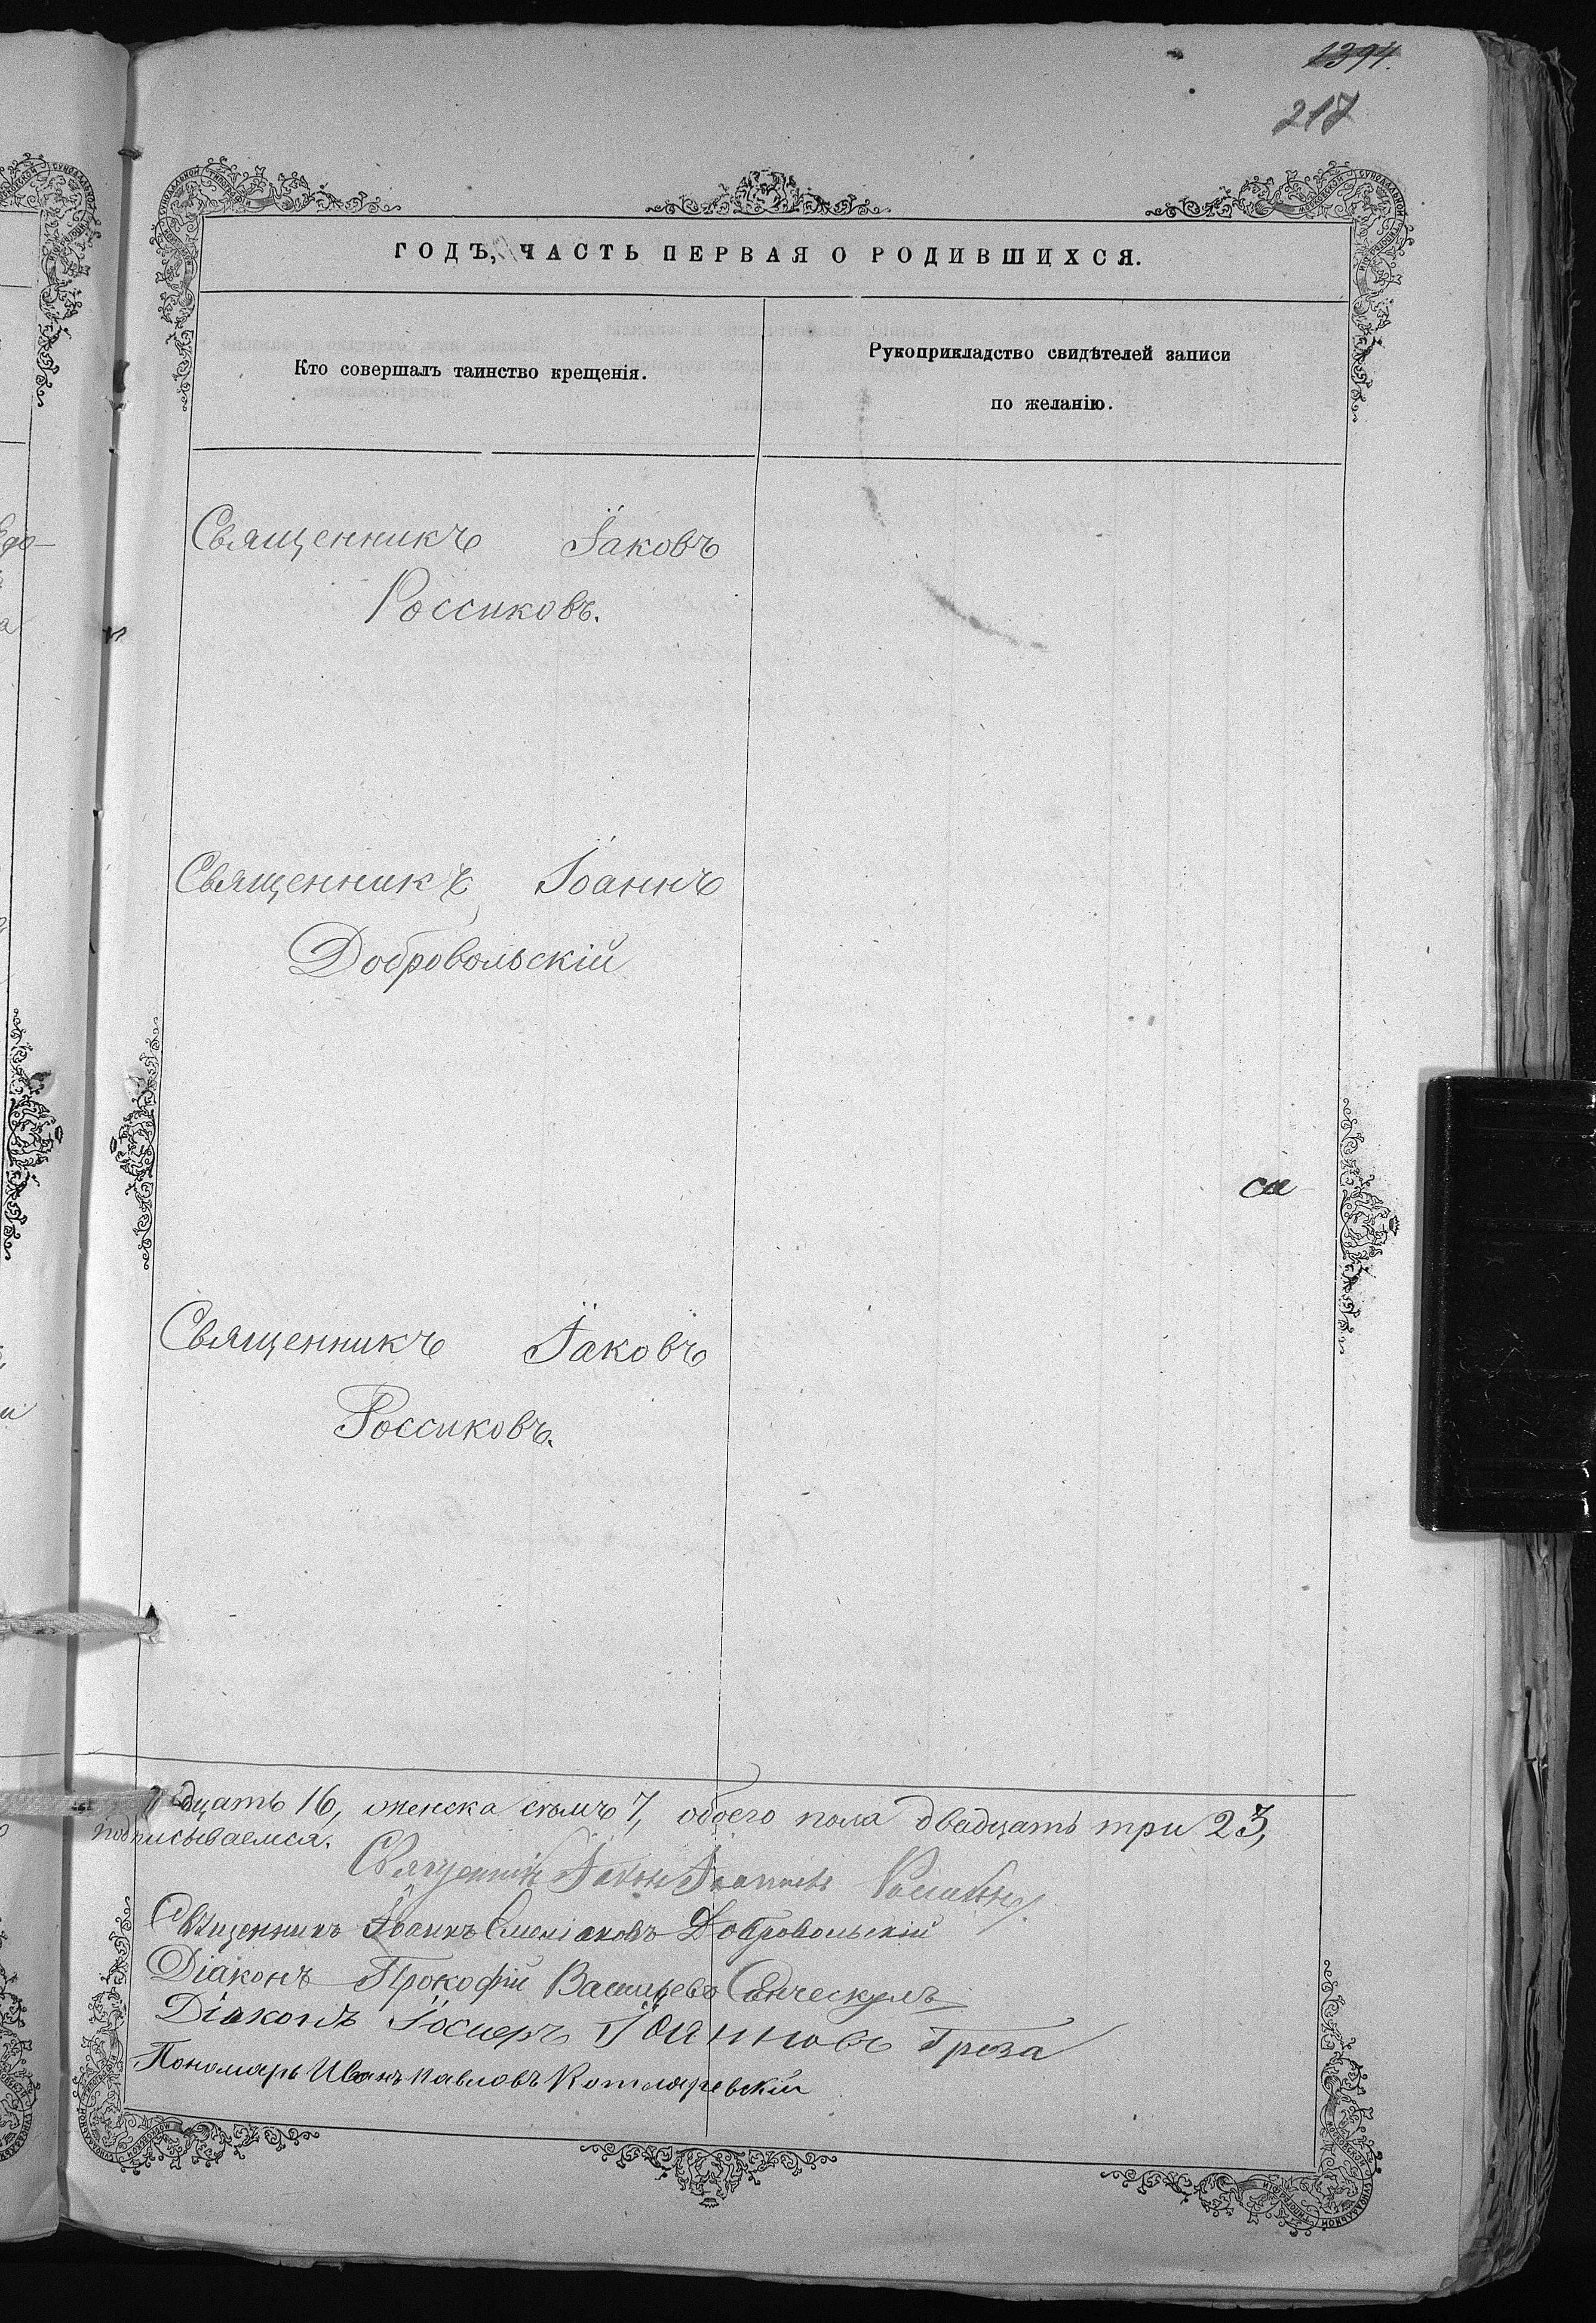 1394.
217
ГОДЪ, ЧАСТЬ ПЕРВАЯ О РОДИВШИХСЯ.
Кто совершалъ таинство крещенія.
Рукоприкладство свидѣтелей записи
по желанію.
Священникъ Іаковъ
Россиковъ.
Священникъ Іоаннъ
Добровольскій
Священникъ Іаковъ
Россиковъ.
дцать 16, женска седмъ 7, обоего пола двадцать три 23,
подписываемся.
Священникъ Іаковъ Іоанновъ Россиковъ.
Священникъ Іоаннъ Добровольскій
Діаконъ Прокофій Васильевъ
Діаконъ Іосифъ Іоанновъ Гроза
Пономарь Иванъ Павловъ Котляревскій